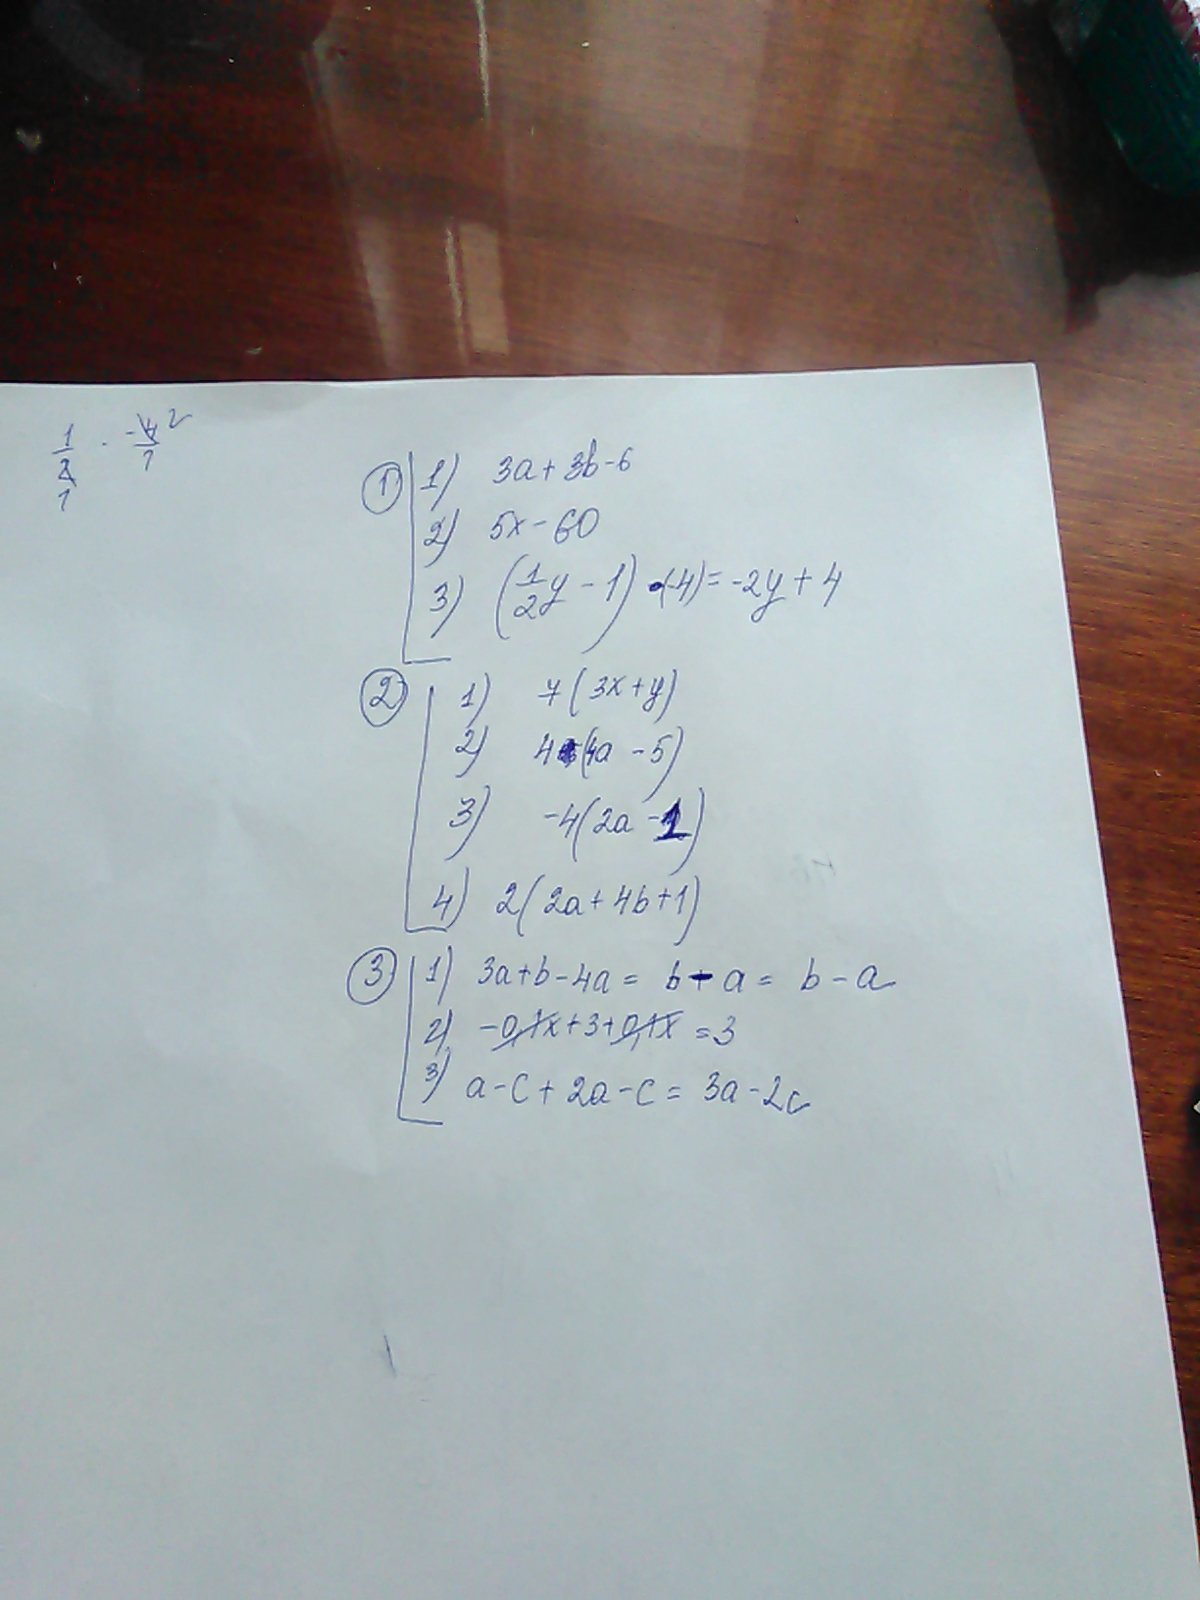 1/2 · -4/1 2
1
① 1) 3a+3b-6
2) 5x-60
3) (1/2y-1)·(-4)=-2y+4
② 1) 7(3x+y)
2) 4(4a-5)
3) -4(2a-1)
4) 2(2a+4b+1)
③ 1) 3a+b-4a= b-a= b-a
2) -0,1x+3+0,1x=3
3) a-c+2a-c= 3a-2c